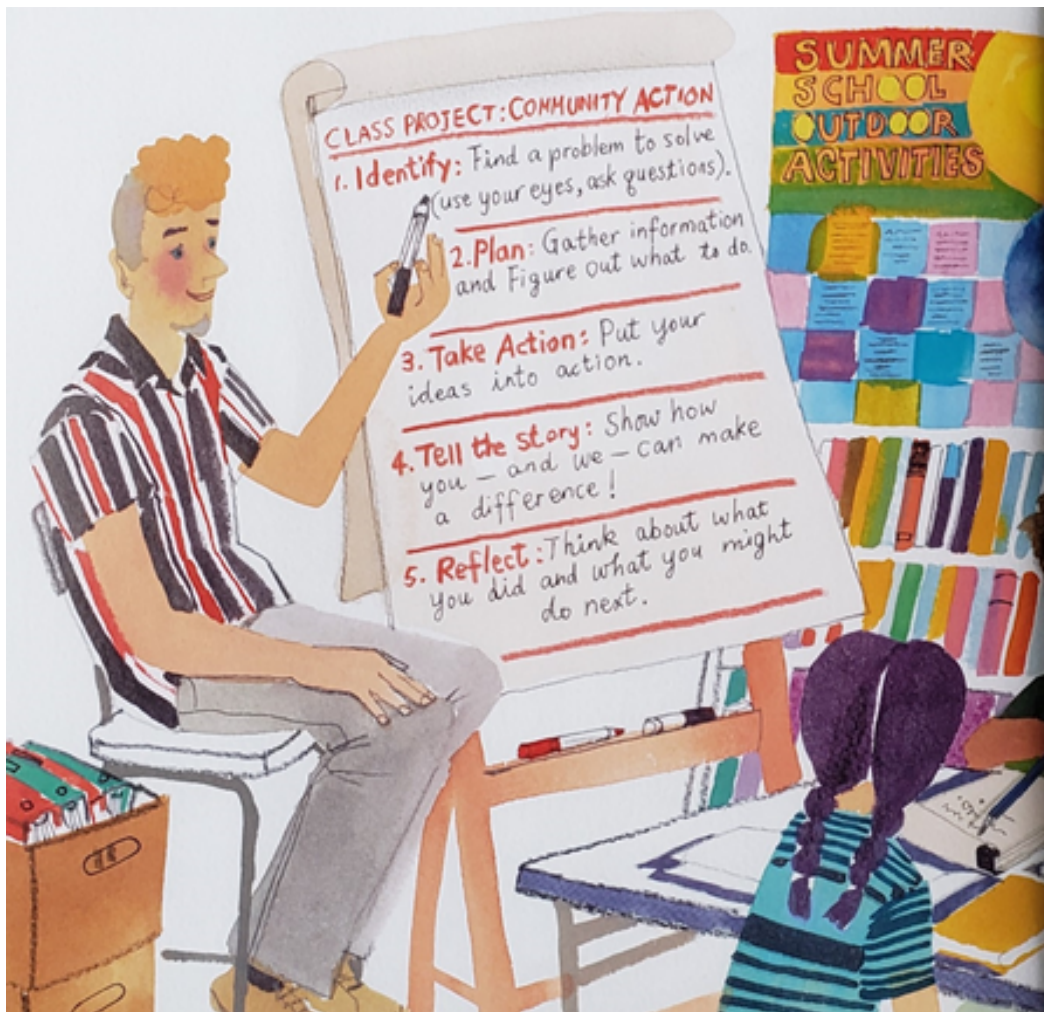 CLASS PROJECT: COMMUNITY ACTION
1. Identify: Find a problem to solve
(use your eyes, ask questions).
2. Plan: Gather information
and Figure out what to do.
3. Take Action: Put your
ideas into action.
4. Tell the story: Show how
you – and we – can make
a difference!
5. Reflect: Think about what
you did and what you might
do next.
SUMMER
SCHOOL
OUTDOOR
ACTIVITIES